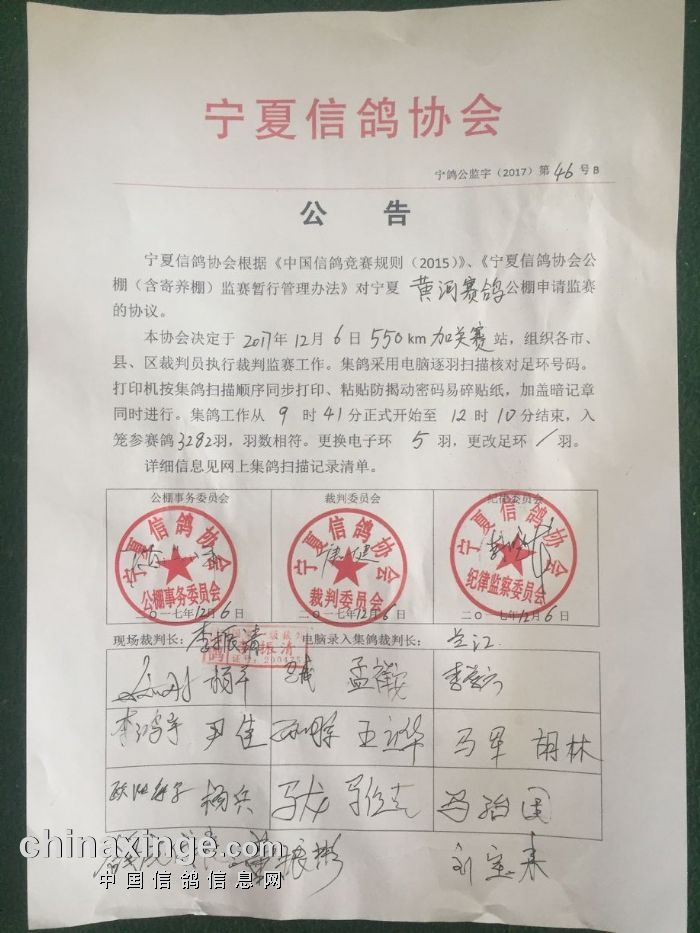 宁夏信鸽协会
宁鸽公监字（2017）第46号B
公 告
宁夏信鸽协会根据《中国信鸽竞赛规则（2015）》、《宁夏信鸽协会公
棚（含寄养棚）监赛暂行管理办法》对宁夏 黄河赛鸽公棚申请监赛
的协议。
本协会决定于 2017年12月6日550km加关赛站，组织各市、
县、区裁判员执行裁判监赛工作。集鸽采用电脑逐羽扫描核对足环号码。
打印机按集鸽扫描顺序同步打印、粘贴防揭动密码易碎贴纸，加盖暗记章
同时进行。集鸽工作从 9 时41分正式开始至 12时10分结束，入
笼参赛鸽3282羽，羽数相符。更换电子环 5 羽，更改足环 / 羽。
详细信息见网上集鸽扫描记录清单。
公棚事务委员会 裁判委员会 纪律委员会
宁夏信鸽协会 宁夏信鸽协会 宁夏信鸽协会
公棚事务委员会 裁判委员会 纪律监察委员会
二〇一七年12月6日 二〇一七年12月6日 二〇一七年12月6日
现场裁判长：李振清 电脑录入集鸽裁判长：兰江
振清
杨军
李鸿宇 尹佳 王立华 马军 胡林
杨兵 马龙
振彬 刘宝来
chinaxinge.com
中国信鸽信息网